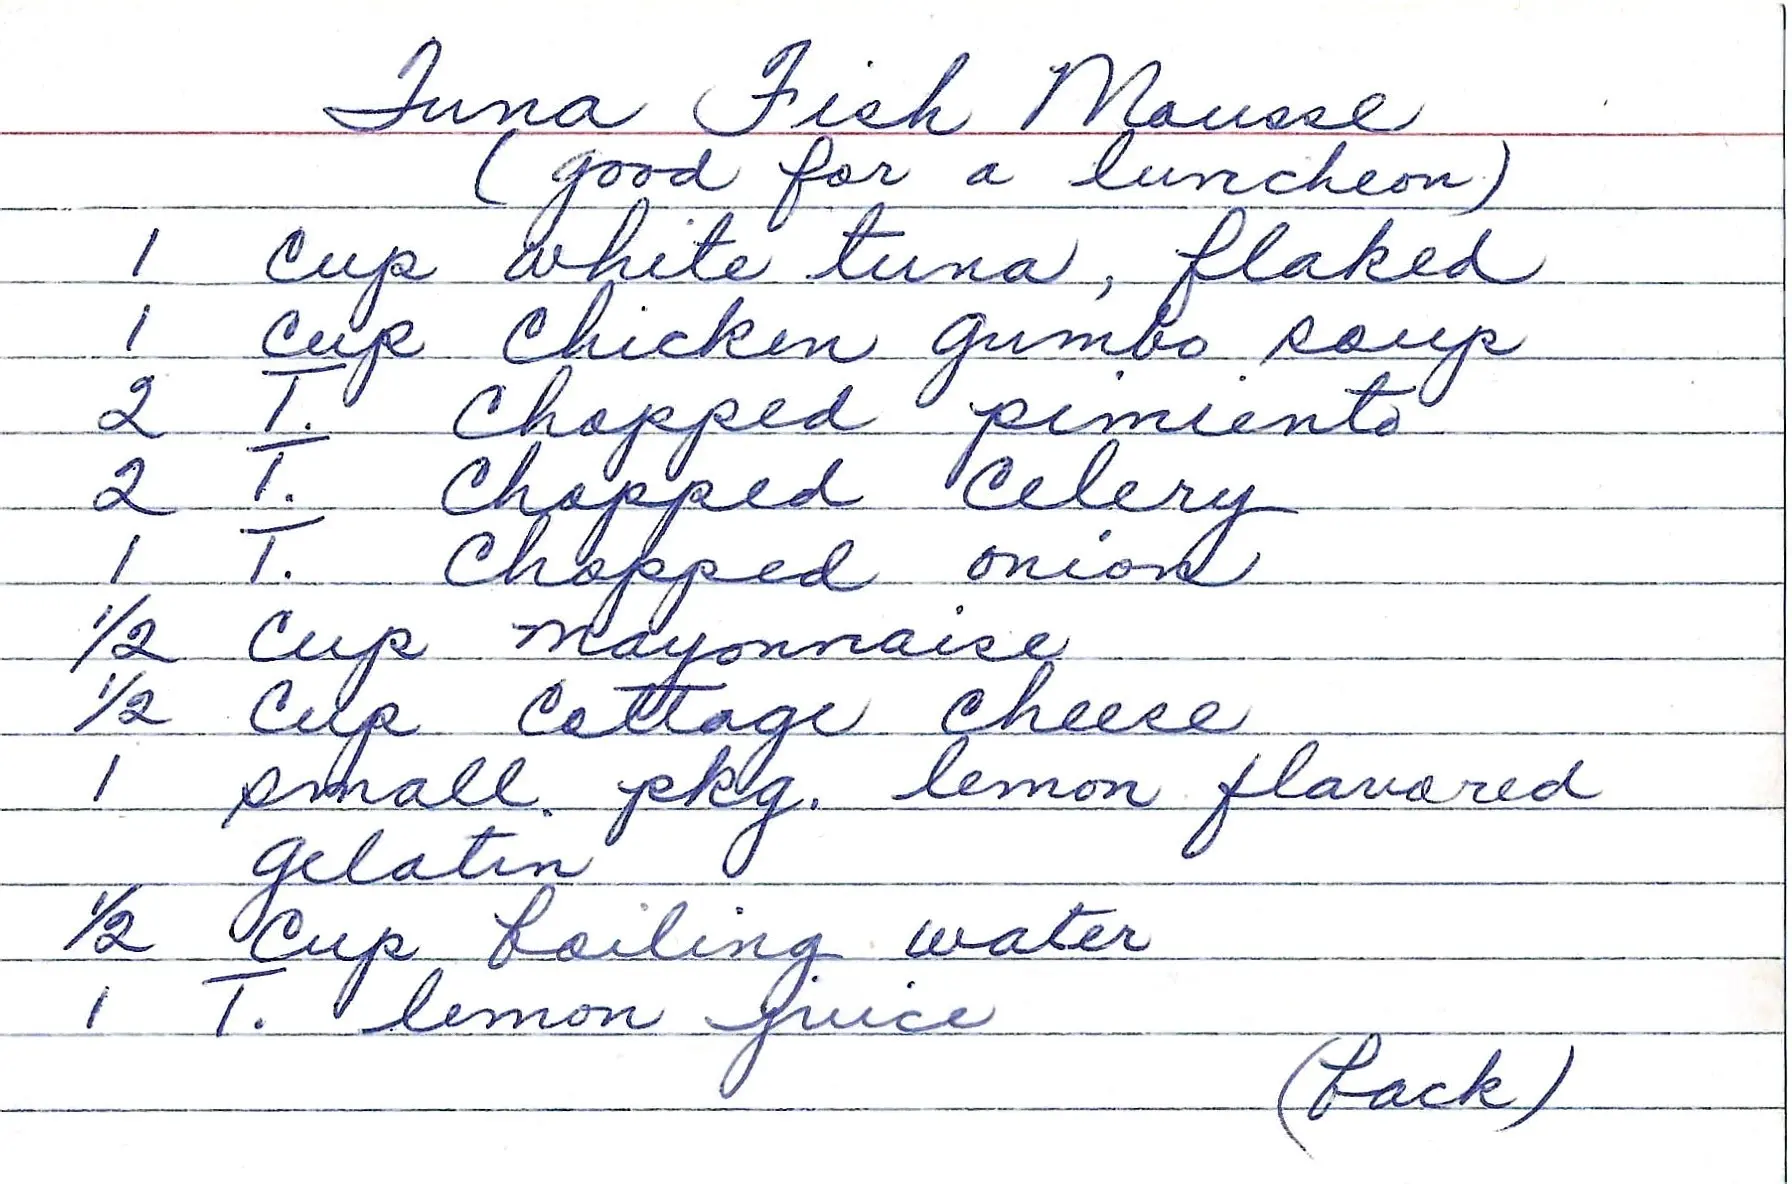 Tuna Fish Mousse
(good for a luncheon)
1 cup white tuna, flaked
1 cup chicken gumbo soup
2 T. chopped pimiento
2 T. chopped celery
1 T. chopped onion
1/2 cup mayonnaise
1/2 cup cottage cheese
1 small pkg. lemon flavored
gelatin
1/2 cup boiling water
1 T. lemon juice
(back)